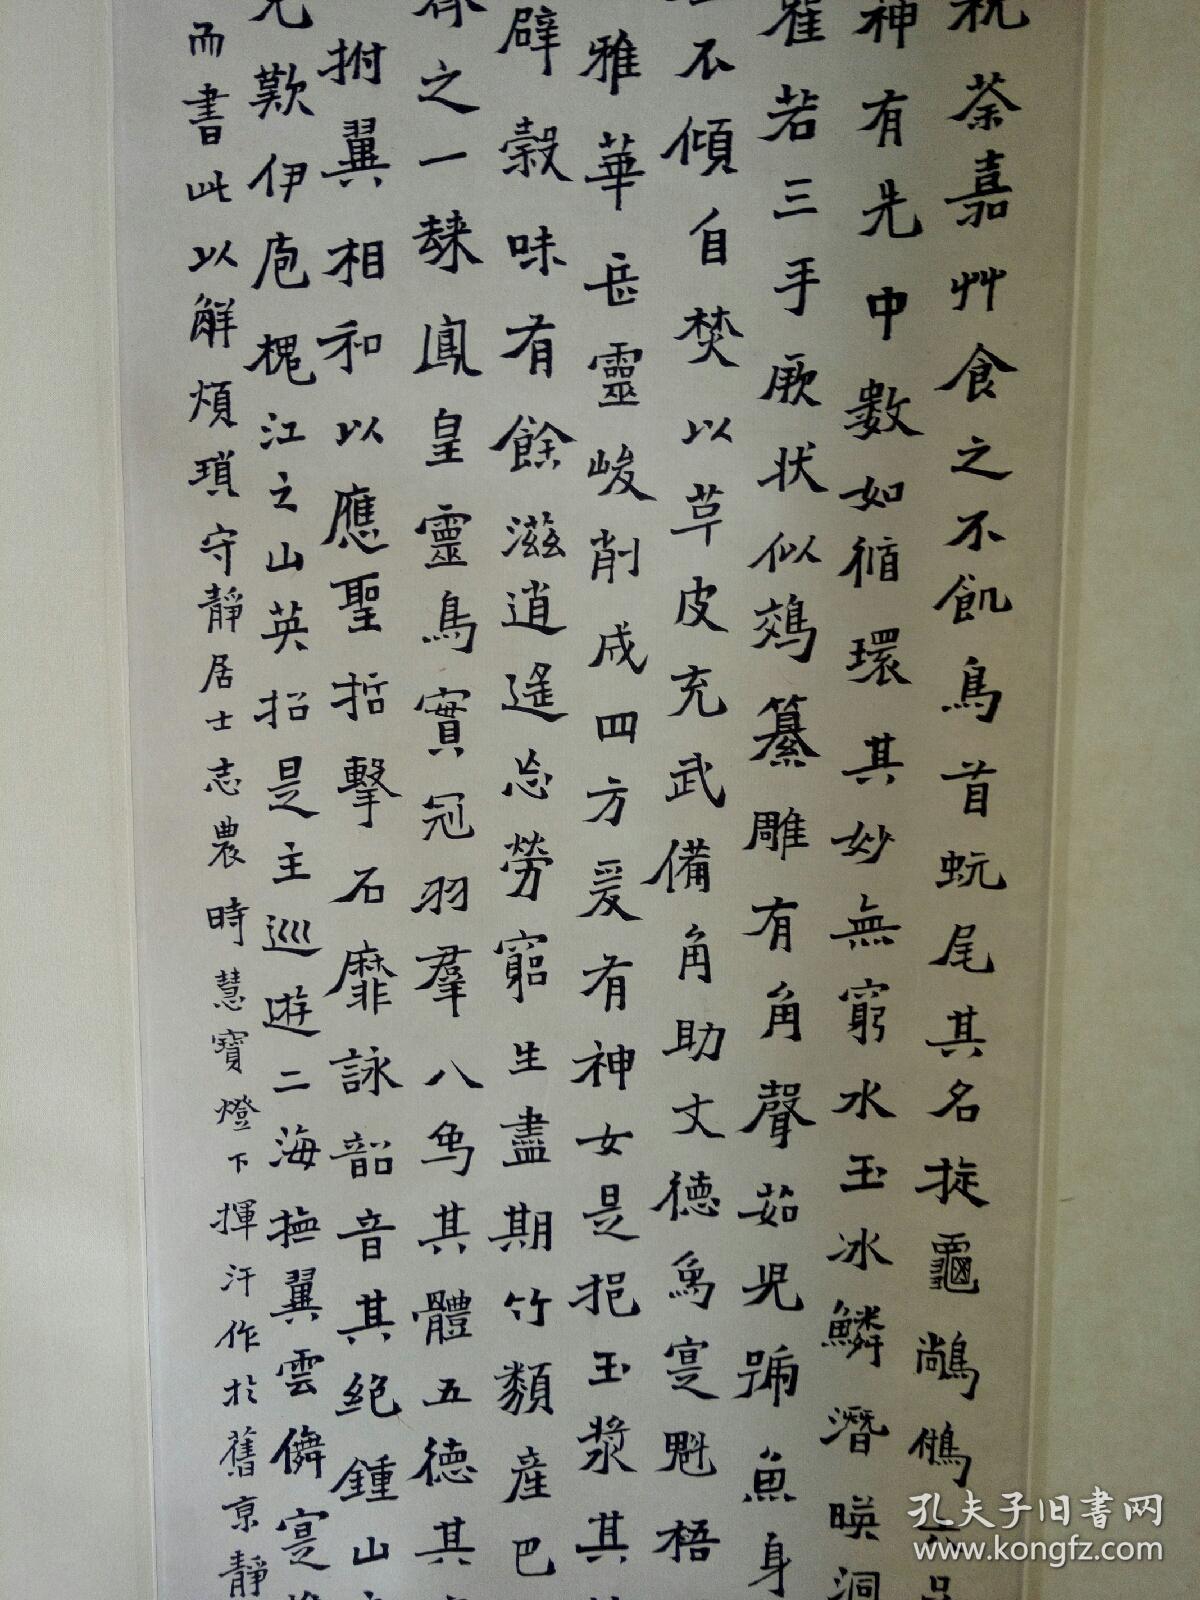 祝荼嘉艸食之不飢鳥首虺尾其名旋龜鵂六足
神有先中數如循環其妙無窮水玉冰鱗潛暎洞
若三手厥状似鵁纂雕有角聲若兒號魚身
不傾自焚以草皮充武備角助文德為寔魁梧
雅華岳靈峻削成四方爰有神女是挹玉漿其
辟穀味有餘滋逍遙忘勞窮生盡期竹類產巴
之一隸鳳皇靈鳥實冠羽羣八鳥其體五德其
拊翼相和以應聖哲擊石靡詠韶音其絕鍾山
歎伊庖槐江之山英招是主巡遊二海撫翼雲儛寔
而書此以解煩瑣守靜居士志農時慧寶燈下揮汗作於舊京靜
孔夫子旧书网
www.kongfz.com